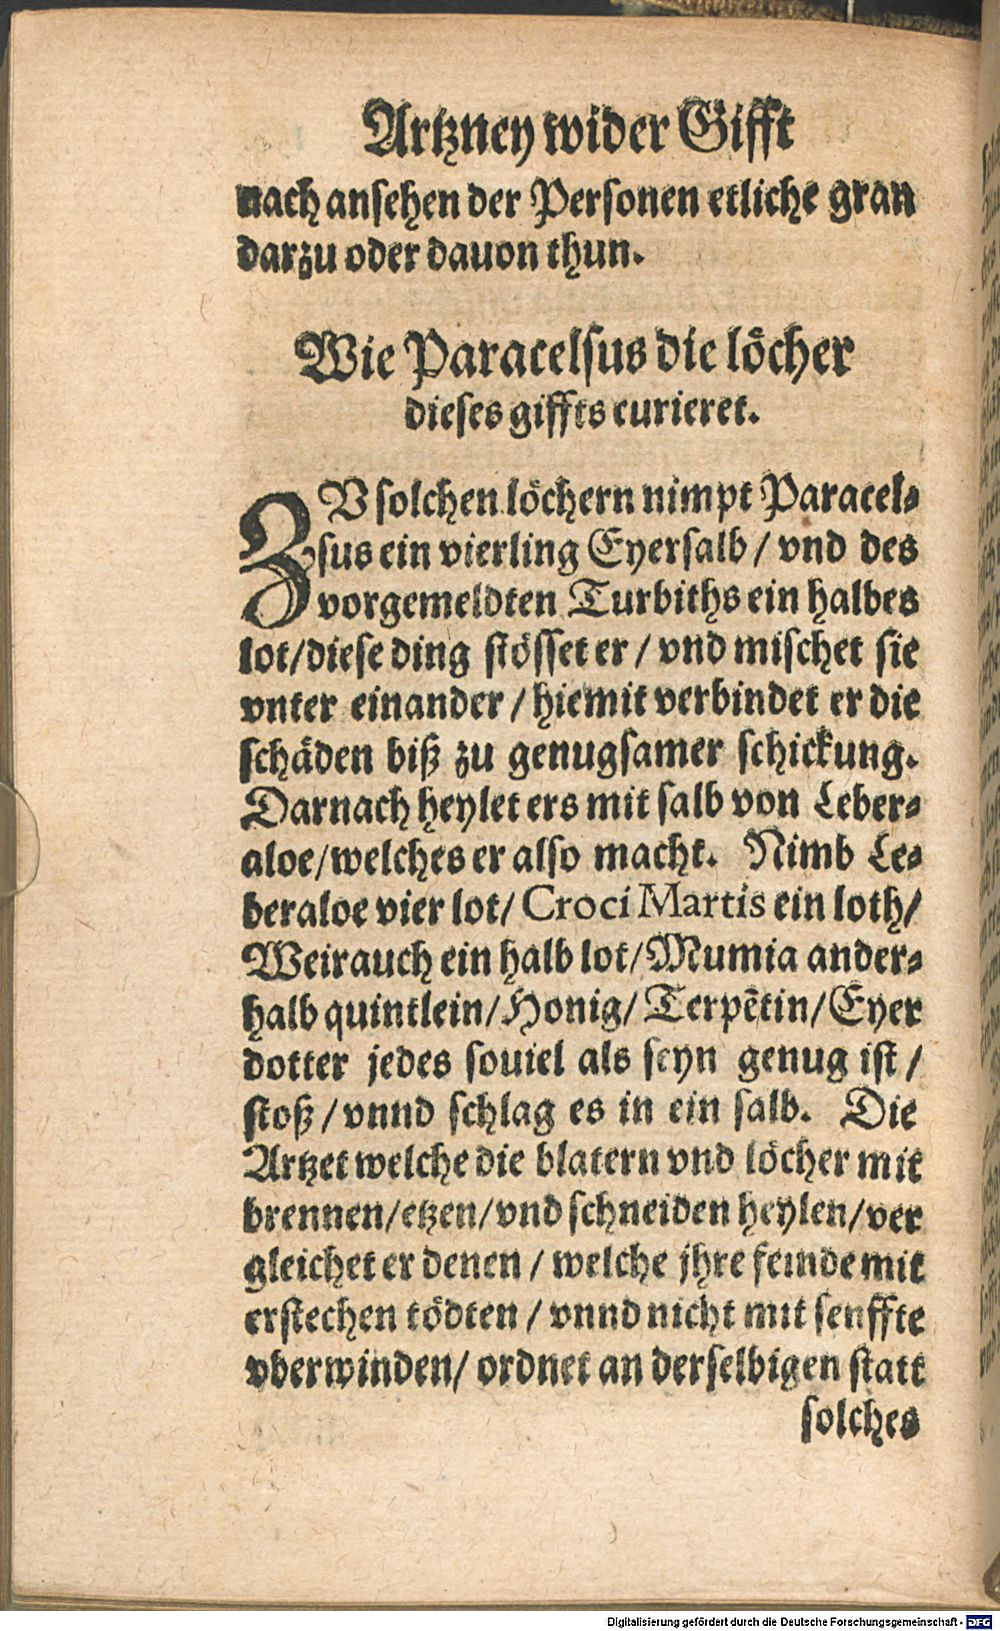 Artzney wider Gifft
nach ansehen der Personen etliche gran
darzu oder dauon thun.
Wie Paracelsus die löcher
dieses giffts curieret.
ZV solchen löchern nimpt Paracel⸗
sus ein vierling Eyersalb / vnd des
vorgemeldten Turbiths ein halbes
lot/diese ding stösset er / vnd mischet sie
vnter einander / hiemit verbindet er die
schäden biß zu genugsamer schickung.
Darnach heylet ers mit salb von Leber⸗
aloe/welches er also macht. Nimb Le⸗
beraloe vier lot/ Croci Martis ein loth/
Weirauch ein halb lot/Mumia ander⸗
halb quintlein/Honig/ Terpẽtin/Eyer
dotter jedes souiel als seyn genug ist /
stoß / vnnd schlag es in ein salb. Die
Artzet welche die blatern vnd löcher mit
brennen/etzen/vnd schneiden heylen/ver
gleichet er denen / welche jhre feinde mit
erstechen tödten / vnnd nicht mit senffte
vberwinden/ ordnet an derselbigen statt
solches
Digitalisierung gefördert durch die Deutsche Forschungsgemeinschaft - DFG